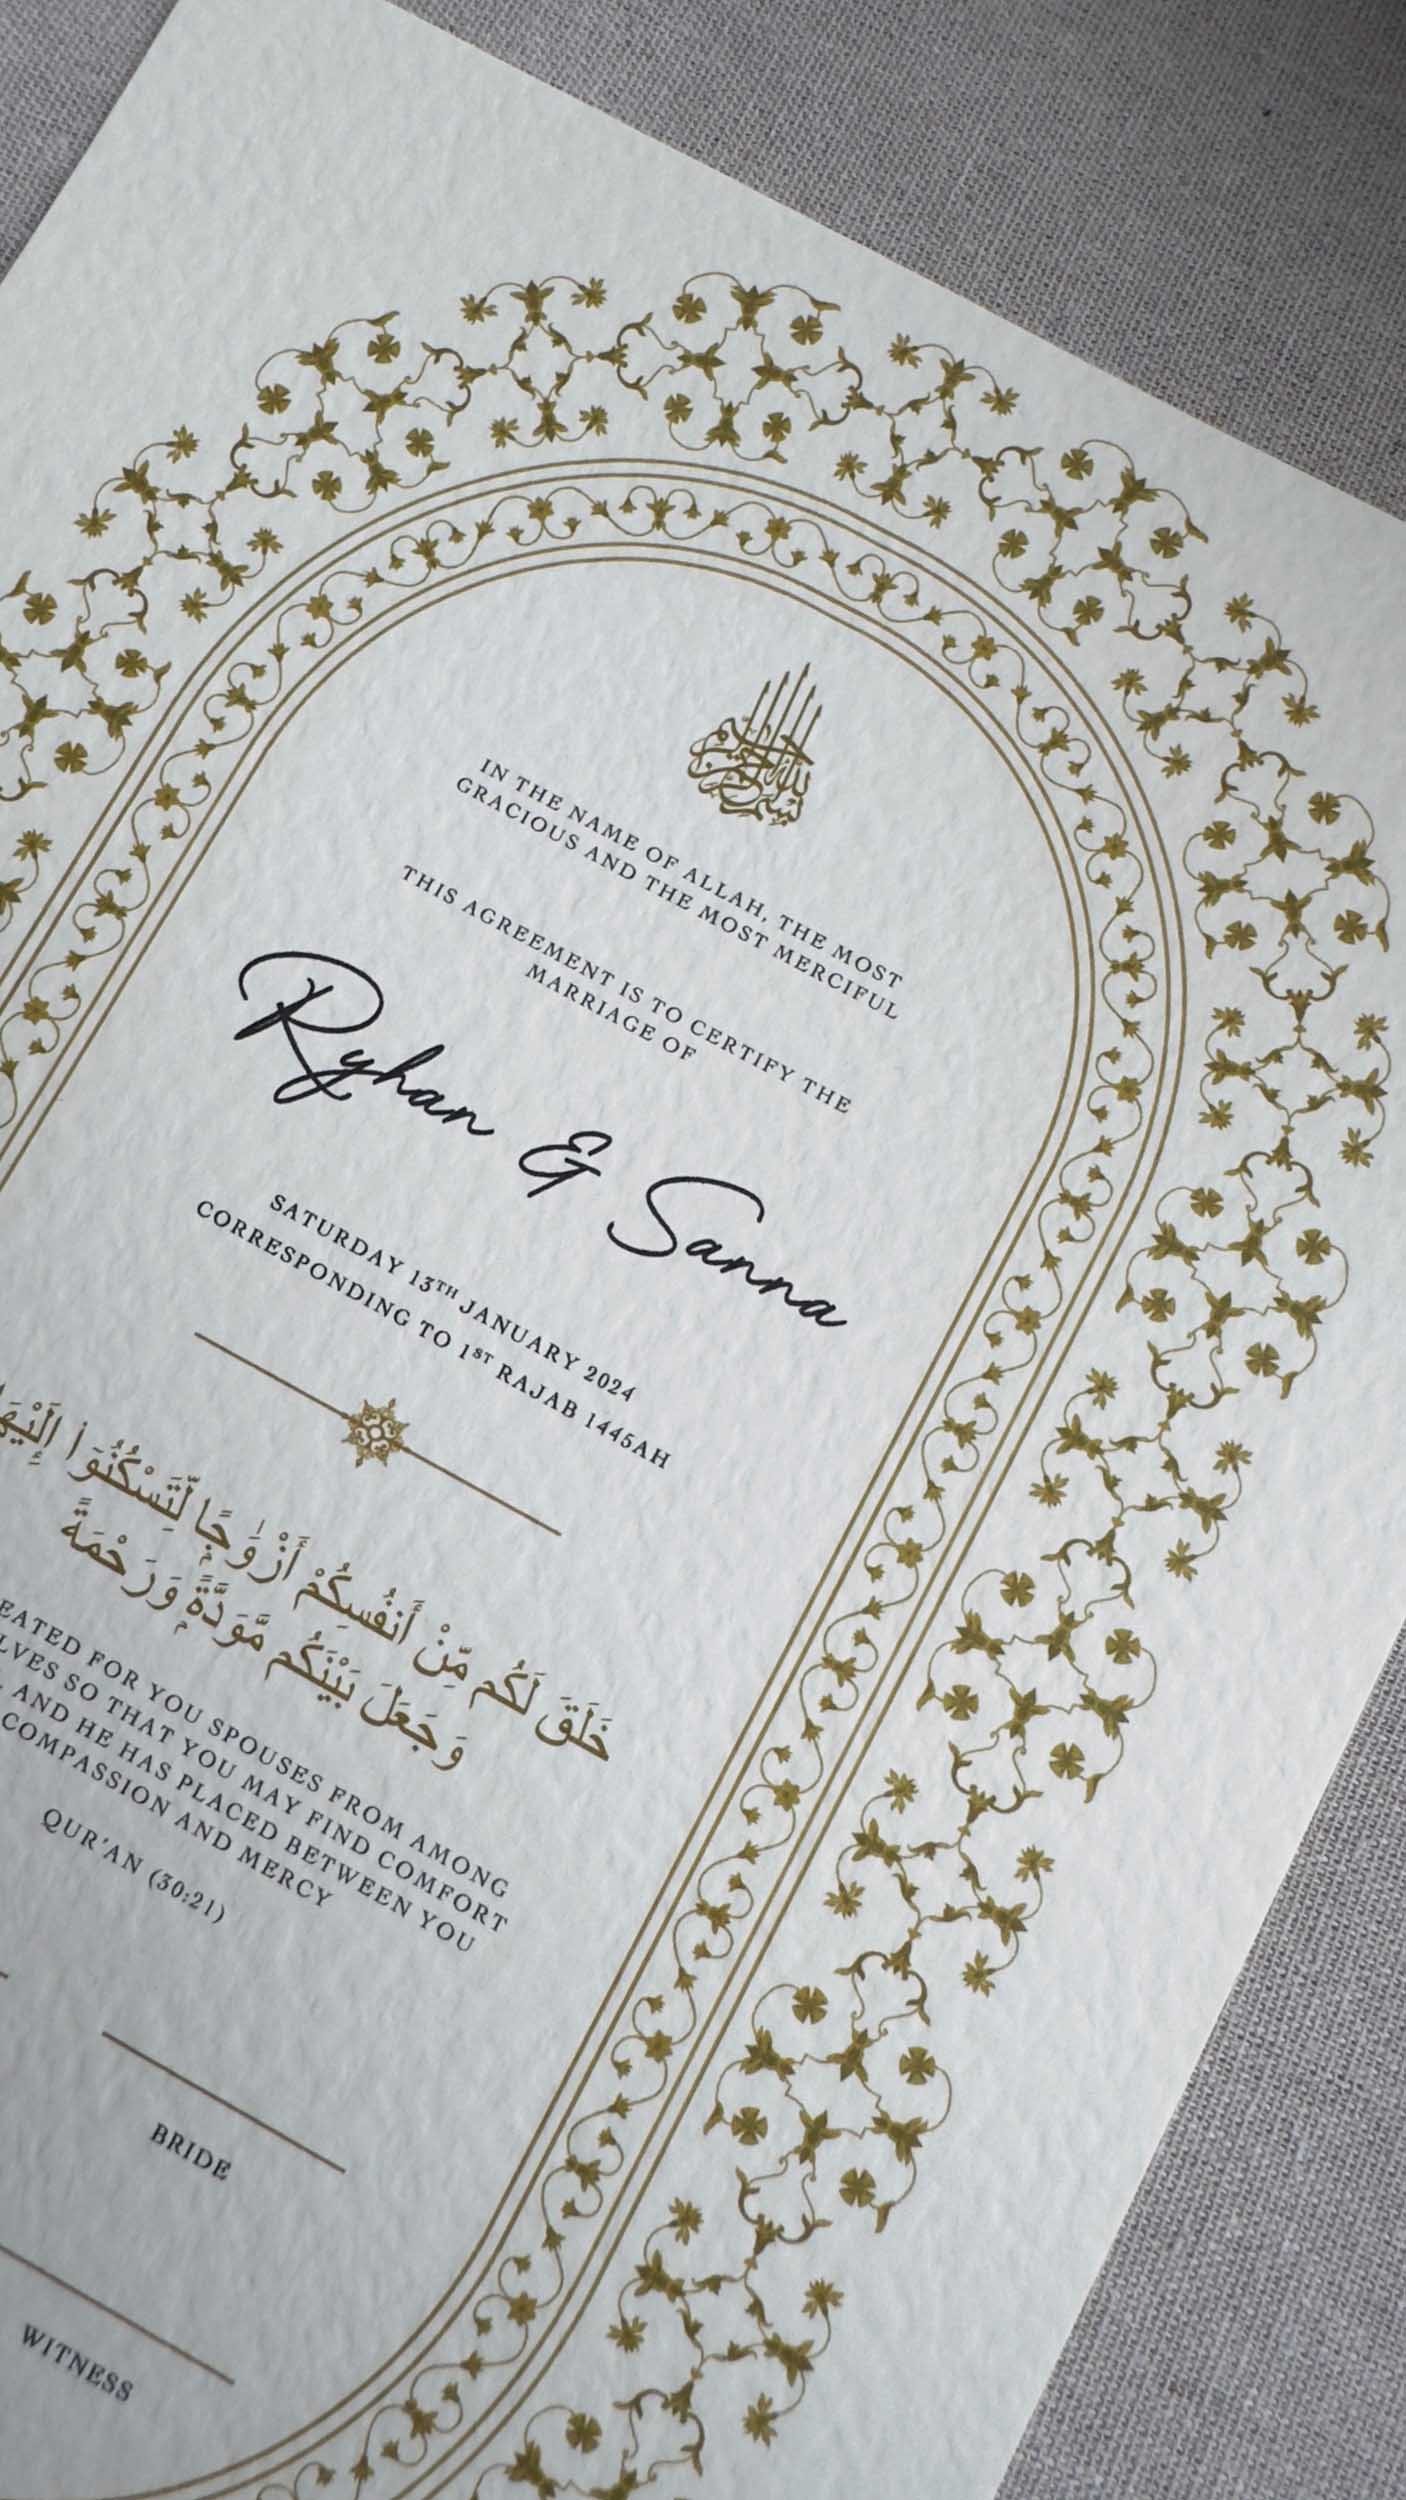 بسم الله الرحمن الرحيم
IN THE NAME OF ALLAH, THE MOST
GRACIOUS AND THE MOST MERCIFUL
THIS AGREEMENT IS TO CERTIFY THE
MARRIAGE OF
Ryhan & Sanna
SATURDAY 13TH JANUARY 2024
CORRESPONDING TO 1ST RAJAB 1445AH
خَلَقَ لَكُم مِّنْ أَنفُسِكُمْ أَزْوَٰجًا لِّتَسْكُنُوٓا۟
وَجَعَلَ بَيْنَكُم مَّوَدَّةً وَرَحْمَةً
FOR YOU SPOUSES FROM AMONG
SO THAT YOU MAY FIND COMFORT
AND HE HAS PLACED BETWEEN YOU
COMPASSION AND MERCY
QUR'AN (30:21)
BRIDE
WITNESS